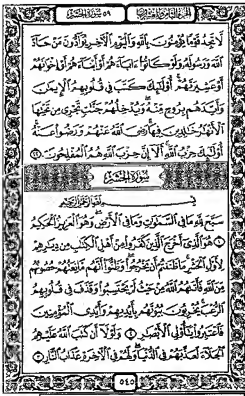 سُورَةُ الحَشْرِ ٥٩
لَّا تَجِدُ قَوْمًا يُؤْمِنُونَ بِٱللَّهِ وَٱلْيَوْمِ ٱلْأَخِرِ يُوَآدُّونَ مَنْ حَآدَّ
ٱللَّهَ وَرَسُولَهُۥ وَلَوْ كَانُوٓا۟ ءَابَآءَهُمْ أَوْ أَبْنَآءَهُمْ أَوْ إِخْوَٰنَهُمْ
أَوْ عَشِيرَتَهُمْ أُو۟لَٰٓئِكَ كَتَبَ فِى قُلُوبِهِمُ ٱلْإِيمَٰنَ
وَأَيَّدَهُم بِرُوحٍ مِّنْهُ وَيُدْخِلُهُمْ جَنَّٰتٍ تَجْرِى مِن تَحْتِهَا
ٱلْأَنْهَٰرُ خَٰلِدِينَ فِيهَا رَضِىَ ٱللَّهُ عَنْهُمْ وَرَضُوا۟ عَنْهُ
أُو۟لَٰٓئِكَ حِزْبُ ٱللَّهِ أَلَآ إِنَّ حِزْبَ ٱللَّهِ هُمُ ٱلْمُفْلِحُونَ ٢٢
سُورَةُ الحَشْرِ
بِسْمِ ٱللَّهِ ٱلرَّحْمَٰنِ ٱلرَّحِيمِ
سَبَّحَ لِلَّهِ مَا فِى ٱلسَّمَٰوَٰتِ وَمَا فِى ٱلْأَرْضِ وَهُوَ ٱلْعَزِيزُ ٱلْحَكِيمُ
١ هُوَ ٱلَّذِىٓ أَخْرَجَ ٱلَّذِينَ كَفَرُوا۟ مِنْ أَهْلِ ٱلْكِتَٰبِ مِن دِيَٰرِهِمْ
لِأَوَّلِ ٱلْحَشْرِ مَا ظَنَنتُمْ أَن يَخْرُجُوا۟ وَظَنُّوٓا۟ أَنَّهُم مَّانِعَتُهُمْ حُصُونُهُم
مِّنَ ٱللَّهِ فَأَتَىٰهُمُ ٱللَّهُ مِنْ حَيْثُ لَمْ يَحْتَسِبُوا۟ وَقَذَفَ فِى قُلُوبِهِمُ
ٱلرُّعْبَ يُخْرِبُونَ بُيُوتَهُم بِأَيْدِيهِمْ وَأَيْدِى ٱلْمُؤْمِنِينَ
فَٱعْتَبِرُوا۟ يَٰٓأُو۟لِى ٱلْأَبْصَٰرِ ٢ وَلَوْلَآ أَن كَتَبَ ٱللَّهُ عَلَيْهِمُ
ٱلْجَلَآءَ لَعَذَّبَهُمْ فِى ٱلدُّنْيَا وَلَهُمْ فِى ٱلْأَخِرَةِ عَذَابُ ٱلنَّارِ ٣
٥٤٥